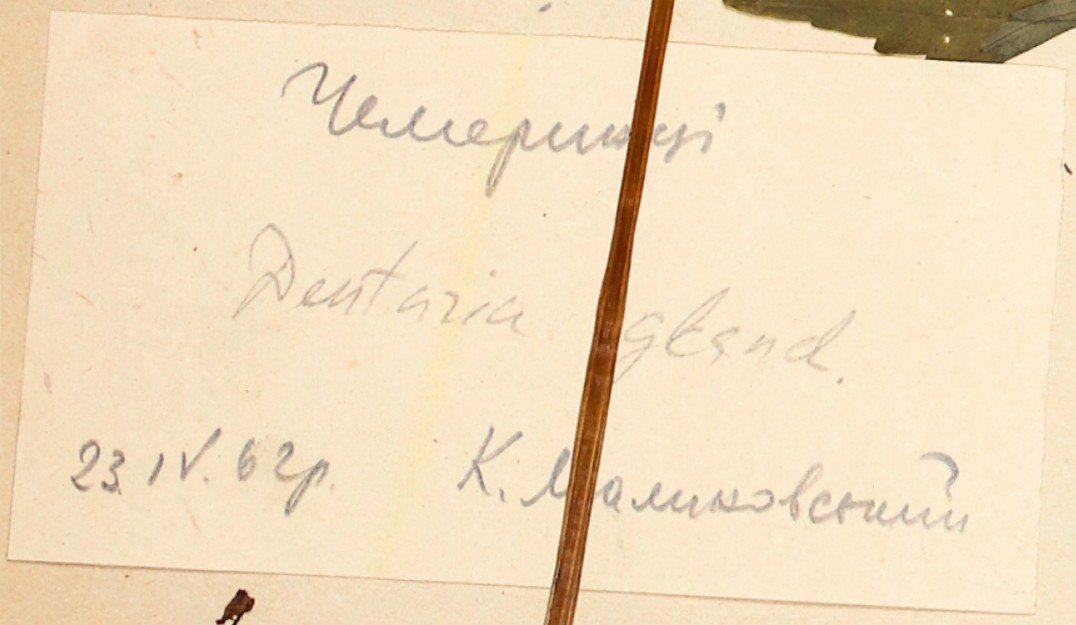 Чемеринці
Dentaria gland.
23.IV.62р. К. Малиновський